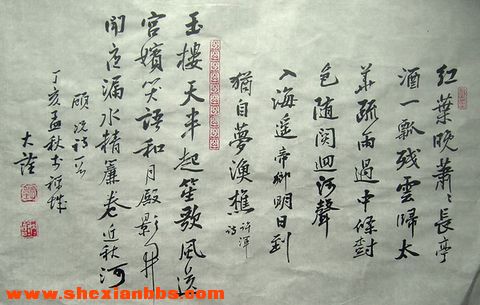 红葉晚蕭々長亭
酒一瓢残雲歸太
華疏雨過中條樹
色随関迥河聲
入海遥帝鄉明日到
猶自夢漁樵 许渾诗
玉樓天半起笙歌風送
宫嬪笑語和月殿影開
闻夜漏水精簾卷近秋河
顾况诗
丁亥孟秋书
www.shexianbbs.com